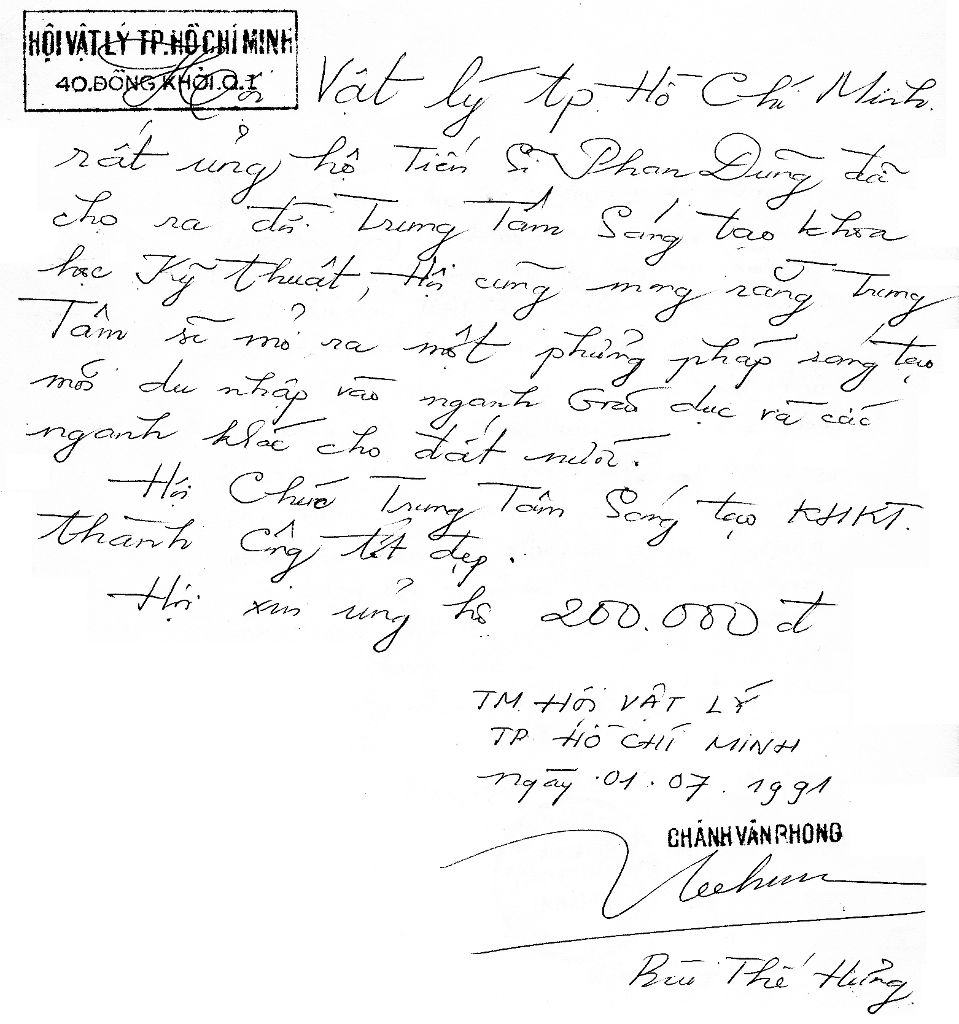 HỘI VẬT LÝ TP. HỒ CHÍ MINH
40. ĐỒNG KHỞI. Q.I
Hội Vật lý tp. Hồ Chí Minh.
rất ủng hộ Tiến Sĩ Phan Dũng đã
cho ra đời Trung Tâm Sáng tạo khoa
học Kỹ thuật, Hội cũng mong rằng Trung
Tâm sẽ mở ra một phương pháp sáng tạo
mới du nhập vào ngành Giáo dục và các
ngành khác cho đất nước.
Hội Chúc Trung Tâm Sáng tạo KHKT.
thành Công tốt đẹp.
Hội xin ủng hộ 200.000 đ
TM. HỘI VẬT LÝ
TP HỒ CHÍ MINH
ngày 01.07.1991
CHÁNH VĂN PHÒNG
Bùi Thế Hưng